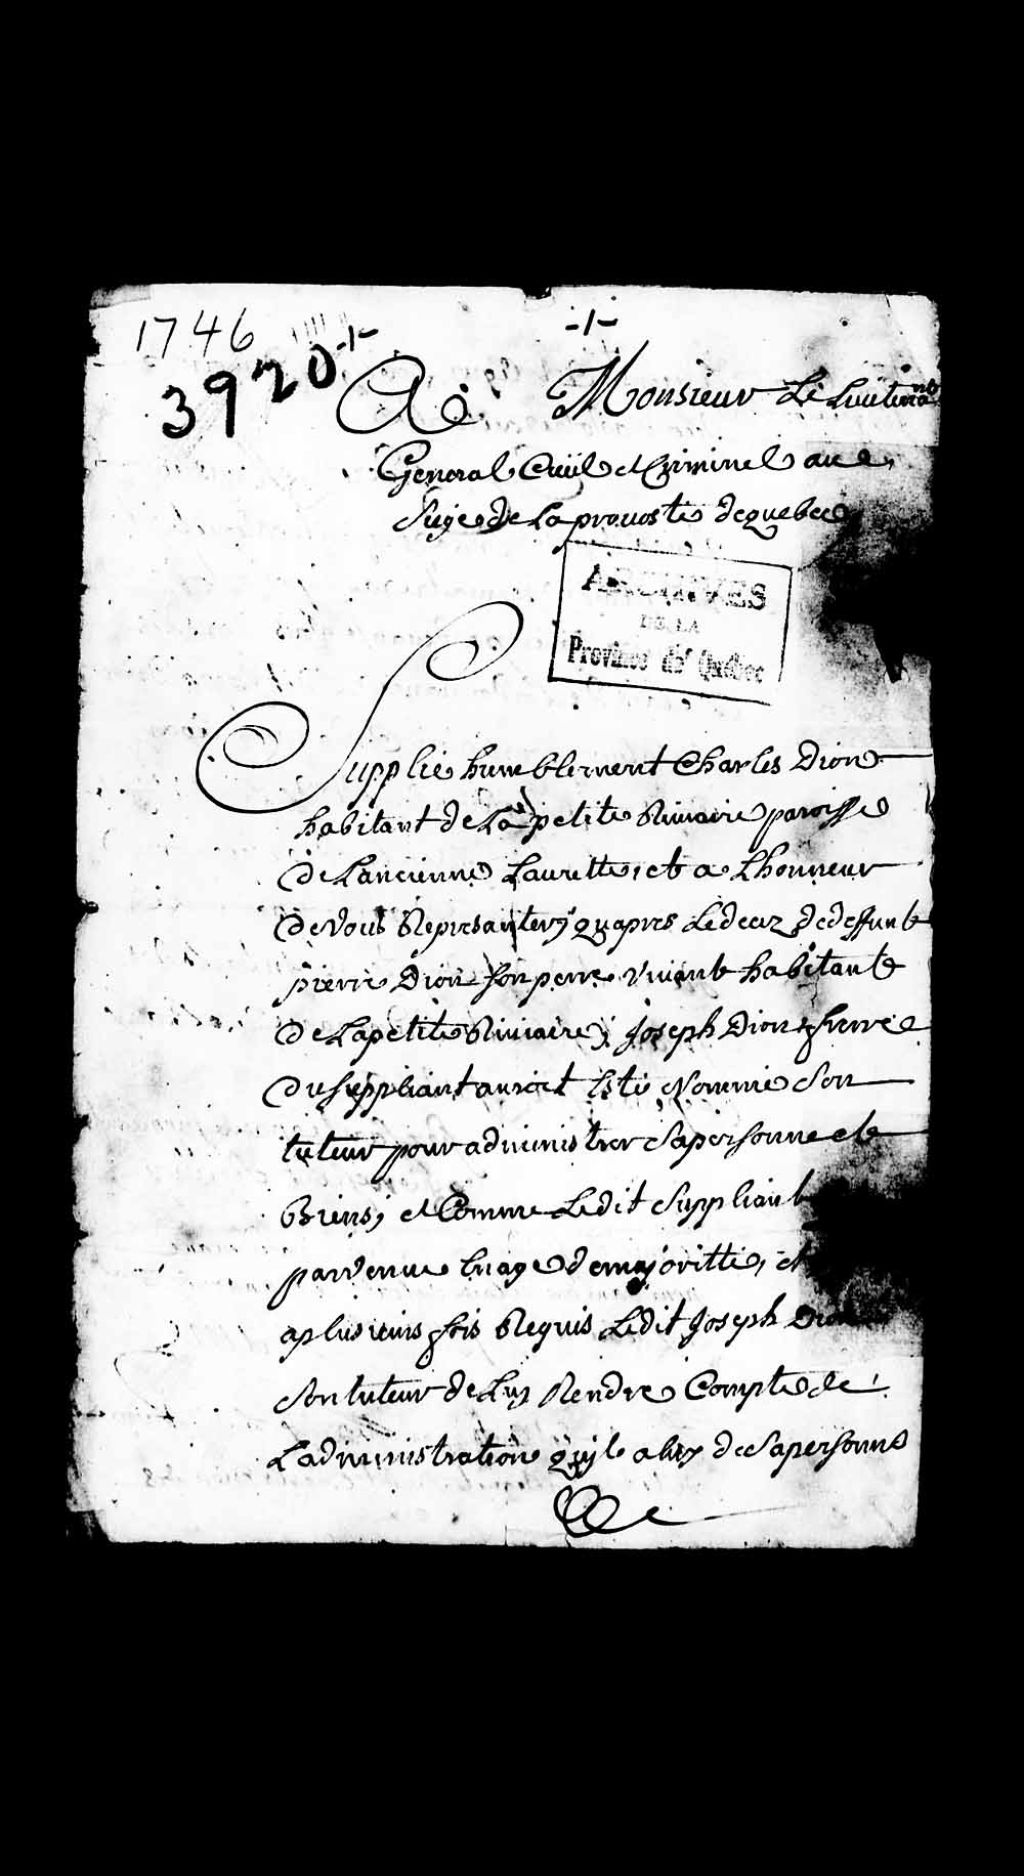 1746
3920 -1-
-1-
A Monsieur Le Lieutena.nt
General Civil et Criminel au
Siege de La provosté de quebec
ARCHIVES
DE LA
Province de Québec
Supplie humblement Charles Dion
habitant de La petite Riviaire paroisse
de Lancienne Laurette, et a Lhonneur
de vous Represanter, quapres Le decez de deffunt
pierre Dion son perre vivant habitant
de Lapetite Riviaire, Joseph Dion frerre
du suppliant auroit Esté Nommé Son
tuteur pour administrer Sapersonne et
Biens, et Comme Ledit Suppliant
parvenue En age demajoritté, et
a plusieurs fois Requis Ledit Joseph Dion
Son tuteur de Luy Rendre Compte de
Ladministration quil a eu de Sapersonne